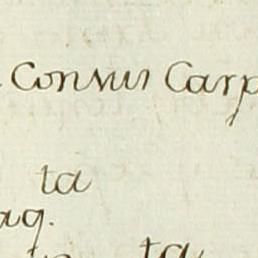 Consui Carp
ta
aq.
ta